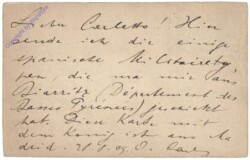 Lieber Carletto! Hier
sende ich die einzige
spanische Militairty-
pen, die man mir aus
Biarritz (Département des
Basses Pyrénées) geschickt
hat. Diese Karte mit
dem König ist aus Ma-
drid. 28.9.09. O. Carlo